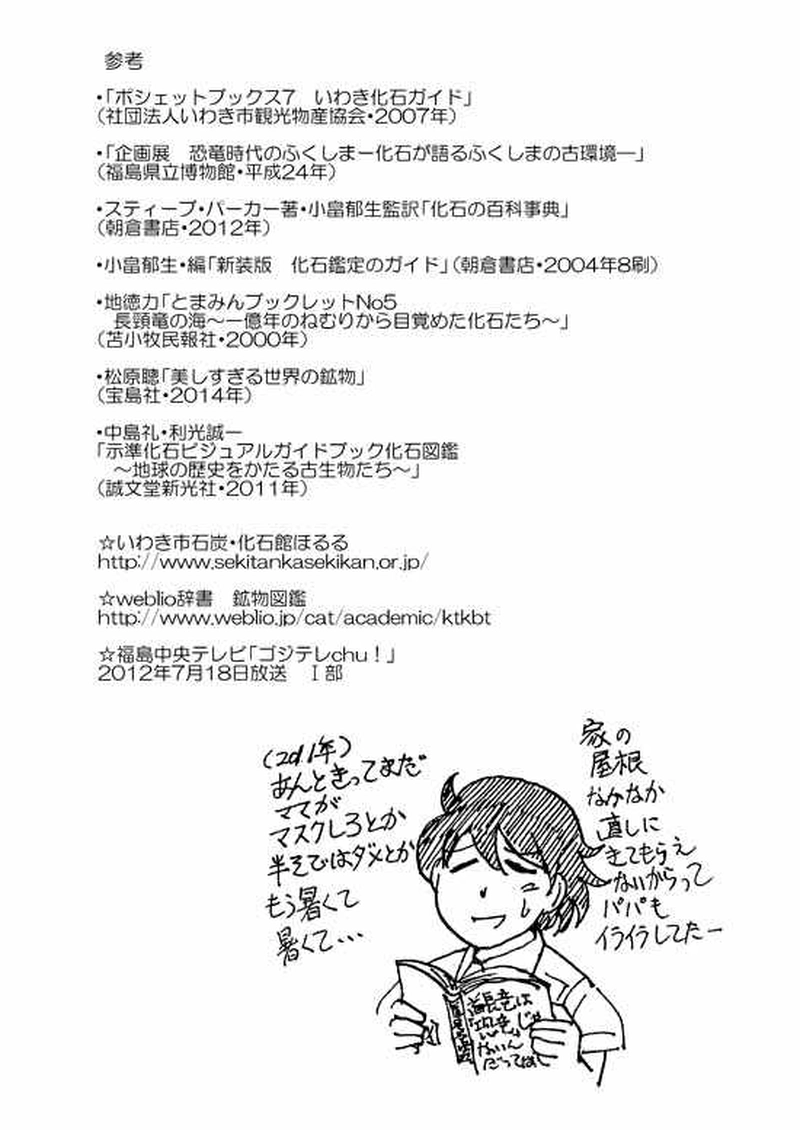 参考
・「ポシェットブックス7　いわき化石ガイド」
（社団法人いわき市観光物産協会・2007年）
・「企画展　恐竜時代のふくしまー化石が語るふくしまの古環境―」
（福島県立博物館・平成24年）
・スティーブ・パーカー著・小畠郁生監訳「化石の百科事典」
（朝倉書店・2012年）
・小畠郁生・編「新装版　化石鑑定のガイド」（朝倉書店・2004年8刷）
・地徳力「とまみんブックレットNo5
長頸竜の海～一億年のねむりから目覚めた化石たち～」
（苫小牧民報社・2000年）
・松原聰「美しすぎる世界の鉱物」
（宝島社・2014年）
・中島礼・利光誠一
「示準化石ビジュアルガイドブック化石図鑑
～地球の歴史をかたる古生物たち～」
（誠文堂新光社・2011年）
☆いわき市石炭・化石館ほるる
http://www.sekitankasekikan.or.jp/
☆weblio辞書　鉱物図鑑
http://www.weblio.jp/cat/academic/ktkbt
☆福島中央テレビ「ゴジテレchu！」
2012年7月18日放送　Ⅰ部
家の
屋根
なかなか
直しに
きてもらえ
ないからって
パパも
イライラしてたー
（2011年）
あんときってまだ
ママが
マスクしろとか
半そではダメとか
もう暑くて
暑くて・・・
首長竜は
恐竜じゃ
ないん
だってね